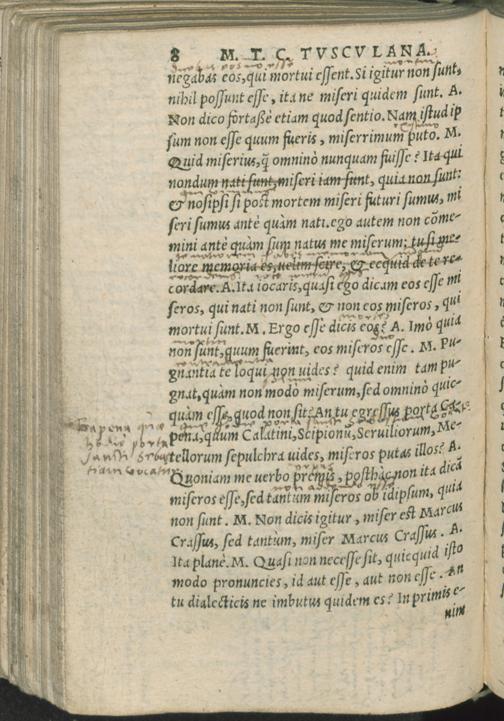 8 M. T. C. TVSCVLANA.
negabas eos, qui mortui essent. Si igitur non sunt,
nihil possunt esse, ita ne miseri quidem sunt. A.
Non dico fortaße etiam quod sentio. Nam istud ip
sum non esse quum fueris, miserrimum puto. M.
Quid miserius, q̃ omninò nunquam fuisse? Ita qui
nondum nati sunt, miseri iam sunt, quia non sunt:
& nosipsi si post mortem miseri futuri sumus, mi
seri sumus antè quàm nati. ego autem non cōme-
mini antè quàm sum natus me miserum: tu si me-
liore memoria es, uelim scire, & ecquid de te re-
cordare. A. Ita iocaris, quasi ego dicam eos esse mi
seros, qui nati non sunt, & non eos miseros, qui
mortui sunt. M. Ergo esse dicis eos? A. Imò quia
non sunt, quum fuerint, eos miseros esse. M. Pu-
gnantia te loqui non uides? quid enim tam pu-
gnat, quàm non modò miserum, sed omninò quic-
quàm esse, quod non sit? An tu egressus porta Ca-
pena, quum Calatini, Scipionũ, Seruiliorum, Me-
tellorum sepulchra uides, miseros putas illos? A.
Quoniam me uerbo premis, posthàc non ita dicā
miseros esse, sed tantum miseros ob idipsum, quia
non sunt. M. Non dicis igitur, miser est Marcus
Crassus, sed tantùm, miser Marcus Crassus. A.
Ita planè. M. Quasi non necesse sit, quicquid isto
modo pronuncies, id aut esse, aut non esse. An
tu dialecticis ne imbutus quidem es? In primis e-
nim
capena que
hodie porta
sancti sebas
tiani vocatur